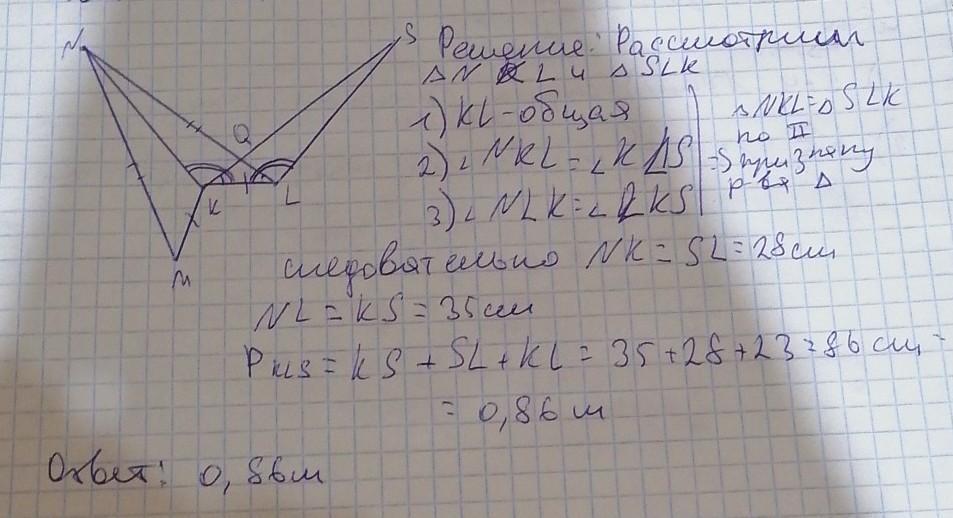 N
S
Q
K
L
M
Решение: Рассмотрим
△NKL и △SLK
1) KL - общая
2) ∠NKL = ∠KLS
3) ∠NLK = ∠LKS
△NKL = △SLK
по II
=> признаку
р-ва △
следовательно NK = SL = 28см
NL = KS = 35см
= KS + SL + KL = 35 + 28 + 23 = 86 см =
= 0,86 м
Ответ: 0,86м